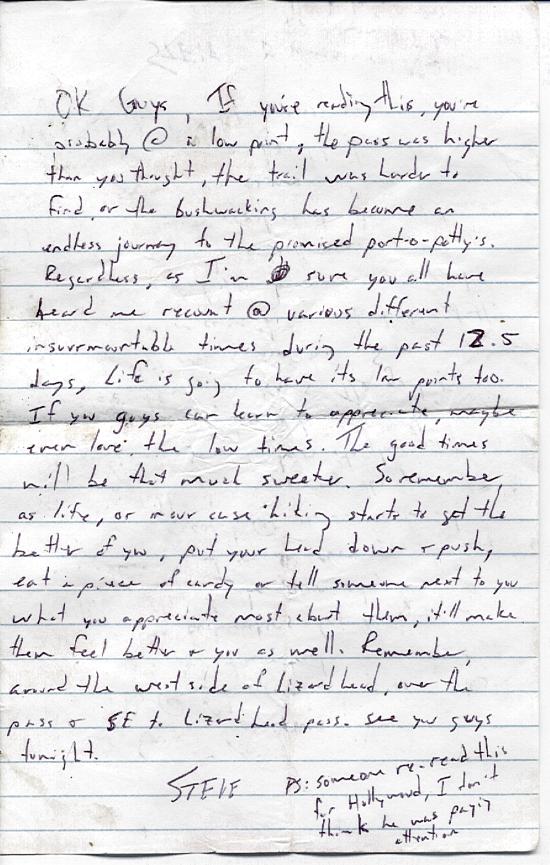 OK Guys, If you're reading this, you're
probably @ a low point, the pass was higher
than you thought, the trail was harder to
find, or the bushwacking has become an
endless journey to the promised port-o-potty's.
Regardless, as I'm sure you all have
heard me recount @ various different
insurmountable times during the past 12.5
days, Life is going to have its low points too.
If you guys can learn to appreciate, maybe
even love the low times. The good times
will be that much sweeter. So remember
as life, or in our case hiking starts to get the
better of you, put your head down + push,
eat a piece of candy or tell someone next to you
what you appreciate most about them, it'll make
them feel better + you as well. Remember,
around the west side of Lizard head, over the
pass + SE to Lizard head pass. See you guys
tonight.
STEVE
PS: someone re-read this
for Hollywood, I don't
think he was paying
attention